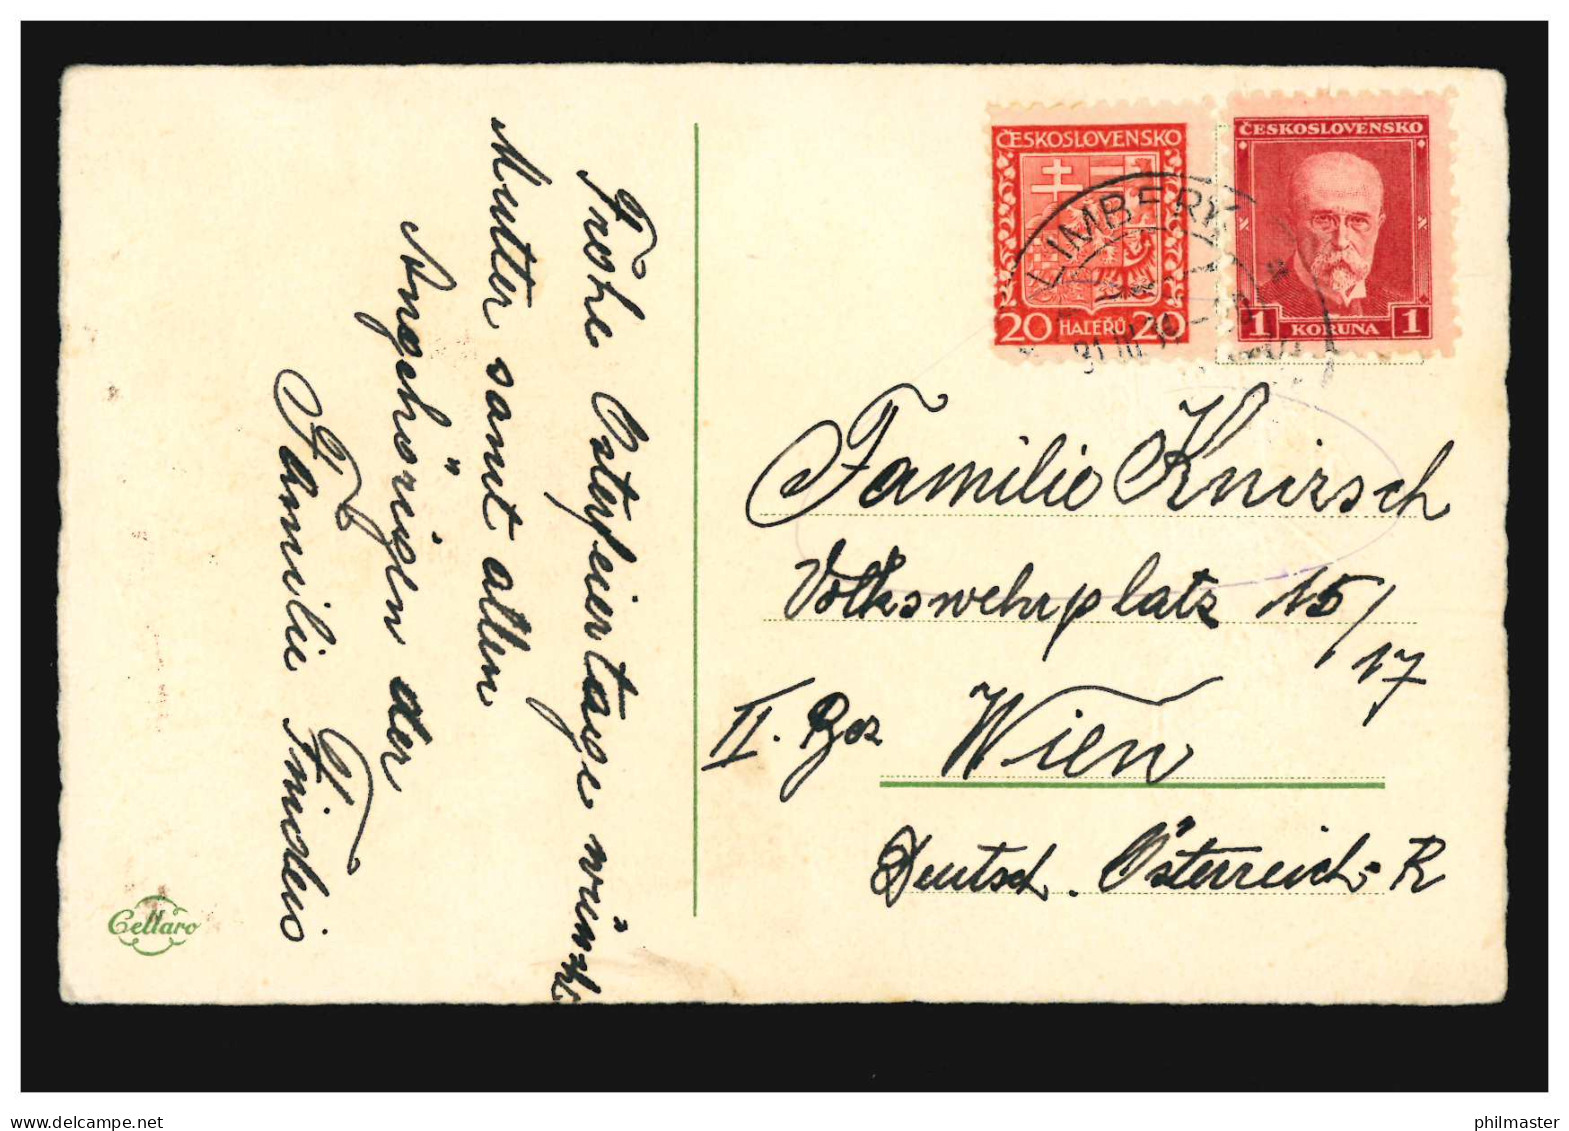 Frohe Osterfeiertage wünscht
Mutter samt allen
Angehörigen der
Familie
Cellaro
ČESKOSLOVENSKO
20 HALÉŘŮ 20
ČESKOSLOVENSKO
1 KORUNA 1
LIMBERK
31.III.
Familie Knirsch
Volkswehrplatz 15/
17
II. Bez Wien
Deutsch. Österreich-R
delcampe.net
philmaster